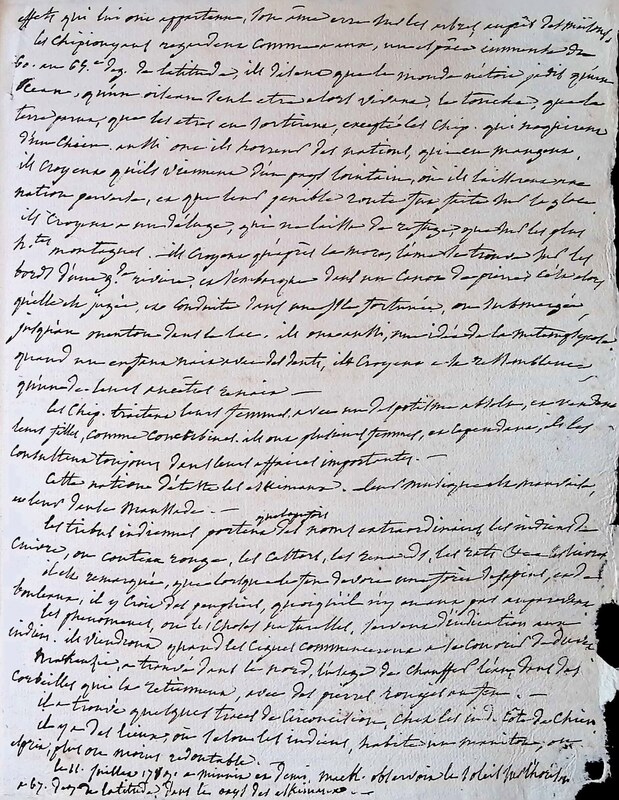 effets qui lui ont appartenu, son âme erre sur les arbres auprès des maisons,
les Chipiouyans regardent comme
60. au 65.e deg. de latitude, ils disent que le monde n'étoit jadis qu'un
Ocean, qu'un oiseau seul etre alors vivant, le toucha, que la
terre parut, que les etres en sortirent, excepté les Chip. qui naquirent
d'un Chien aussi ont ils horreur des nations, qui en mangent,
ils Croyent qu'ils viennent d'un pays lointain, où ils laisserent une
nation perverse, et que leur penible route fut faite sur la glace
ils Croyent a un déluge, qui ne laissa de refuge, que sur les plus
h.tes montagnes. ils Croyent qu'après la mort, l'ame se trouve sur les
bords d'une g.de riviere, et s'embarque dans un Canot de pierre, c'est alors
qu'elle est jugée, et Conduite dans une isle fortunée, ou submergée,
jusqu'au menton dans le lac. ils ont aussi, une idée de la metempsycose
quand un enfant nait avec des dents, ils Croyent a la ressemblance,
qu'un de leurs ancêtres renait —
les Chip. traitent leurs femmes avec un despotisme absolu, et vendent
leurs filles, comme Concubines. ils ont plusieurs femmes, et cependant, ils les
Consultent toujours dans leurs affaires importantes. —
Cette nation déteste les eskimaux. leur musique est mauvaise,
et leur danse Maussade. —
les tribus indiennes portent quelquefois des noms extraordinaires, les indiens de
Cuivre, ou Couteau rouge, les Castors, les renards, les rats
il est remarqué, que lorsque le feu devore une forêt de sapins, et de
bouleaux, il y Croit des peupliers, quoiqu'il n'y en eut pas auparavant
les phenomenes, ou les choses naturelles, servent d'indication aux
indiens. ils viendront quand les Cignes commenceront a se couvrir de duvet
Makensie, a trouvé dans le nord, l'usage de chauffer l'eau dans des
Corbeilles qui la retiennent, avec des pierres rouges au feu. —
il a trouvé quelques traces de Circoncision, chez les ind. Côte de Chien
il y a des lieux, ou selon les indiens, habite un manitou, ou
esprit, plus ou moins redoutable.
le 11. Juillet 1789. a minuit et demi, observoit le soleil sur l'horison
a 67. deg. de latitude, dans le pays des eskimaux. —